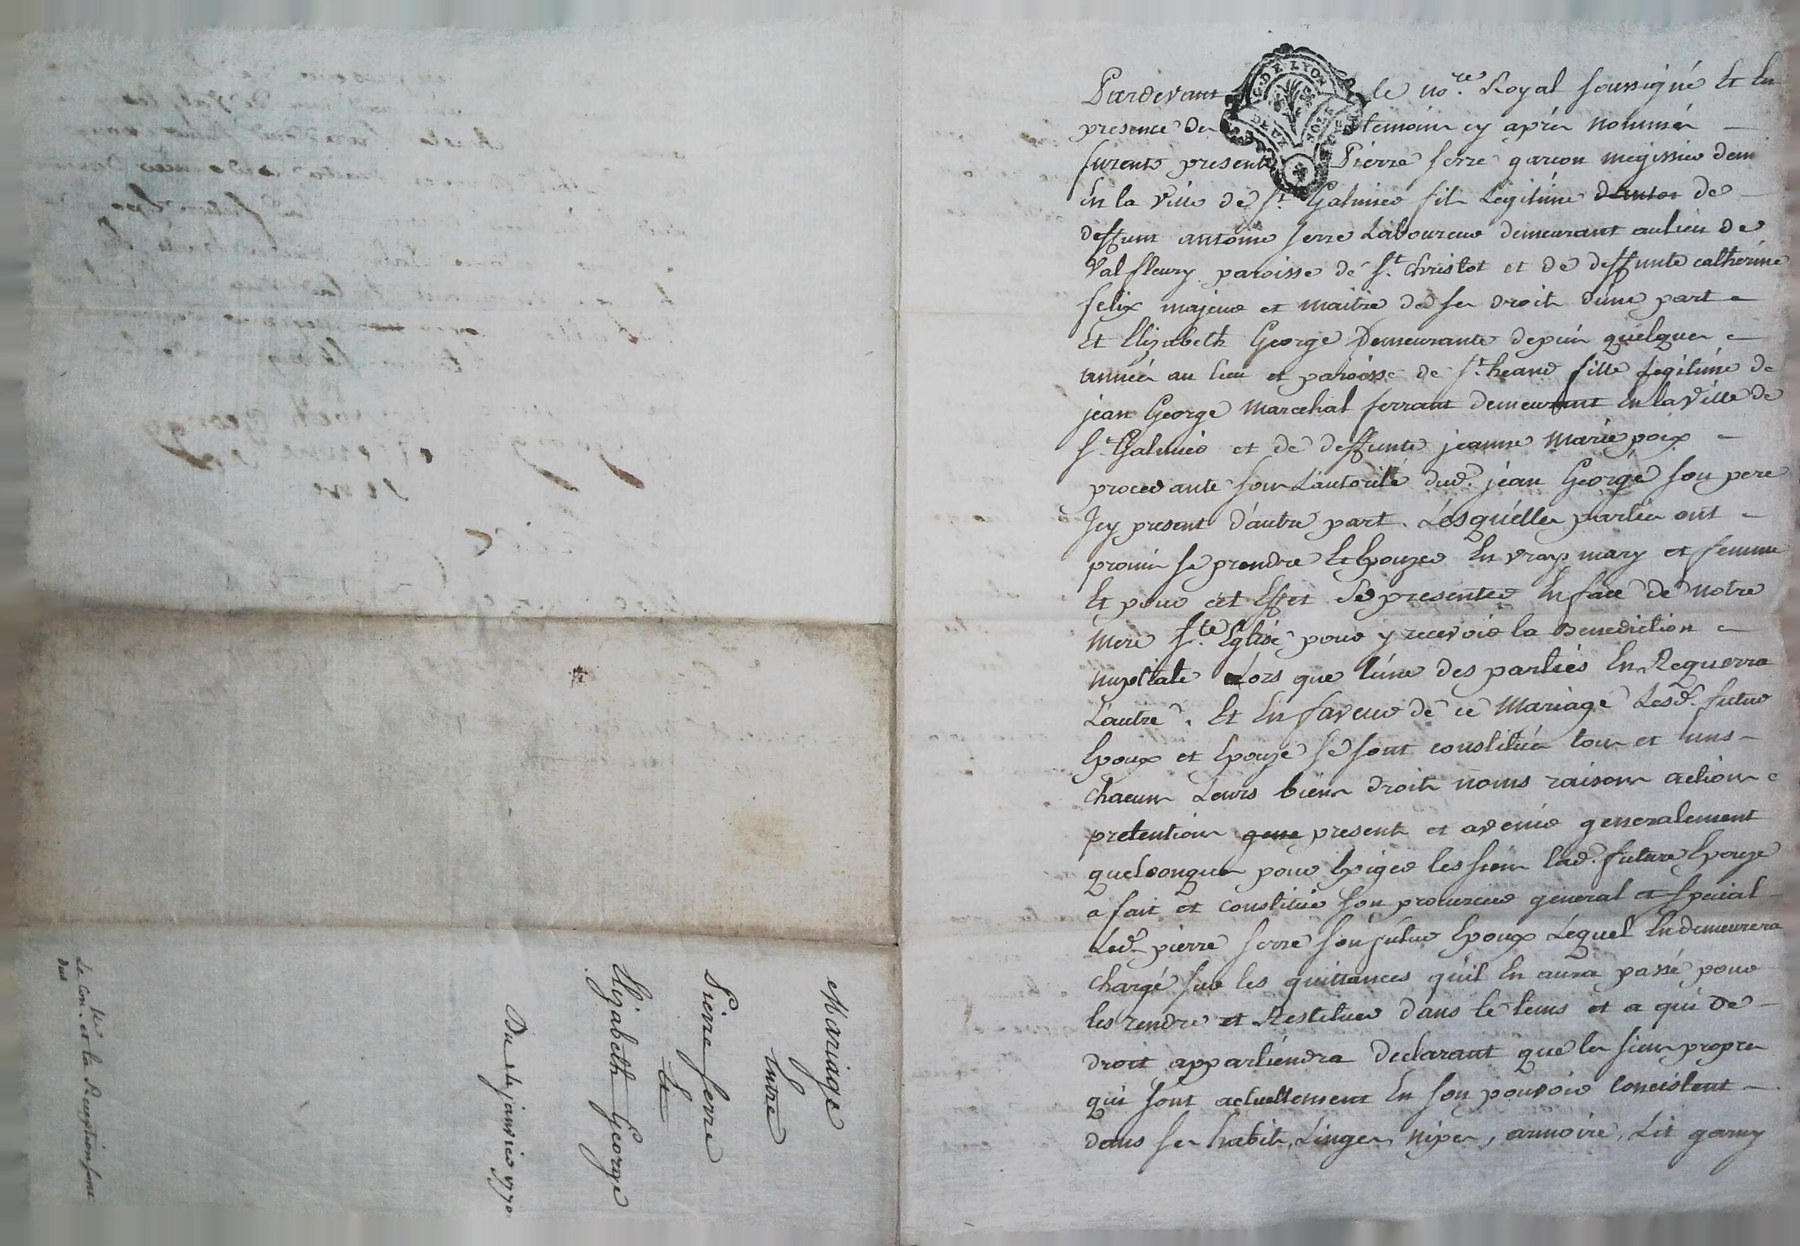 Pardevant le no.re Royal soussigné Et En
presence des temoins cy aprés nommés
furents presents Pierre serre garcon megissier dem
En la ville de St Galmier fils Legitime de
deffunt antoine serre Laboureur demeurant au lieu de
Valfleury paroisse de St christot et de deffunte catherine
felix majeur et maitre de ses droits d'une part
Et Elizabeth George Demeurante depuis quelques
années au lieu et paroisse de St heand fille Legitime de
jean George Marechal ferrant demeurant En la Ville de
St Galmier et de deffunte jeanne Marie poix
procedante sous L'autorité dud. jean George son pere
Jcy present d'autre part. Lesquelles parties ont
promis se prendre Et Epouzer En vrays mary et femme
Et pour cet Effet Se presenter En face de notre
Mere Ste Eglise pour y recevoir la Benediction
nuptiale Lors que l'une des parties En Requerra
L'autre. Et En faveur de ce Mariage Lesd. futur
Epoux et Epouze se sont constitués tous et uns
chacuns Leurs biens droits noms raisons actions
pretentions presents et avenir generalement
quelconques pour Exiger les siens lad. future Epouze
a fait et constitué son procureur general et special
Led. pierre serre son futur Epoux Lequel En demeurera
chargé sur les quittances qu'il En aura passé pour
les rendre et Restituer dans le tems et a qui de
droit appartiendra declarant que les siens propres
qui sont actuellement En son pouvoir Concistent
dans ses habits, Linges, nipes, armoire, Lit garny
Mariage
Entre
Pierre serre
Et
Elizabeth George
Du janvier 1770
Le Con.le et la Reception sont
dus